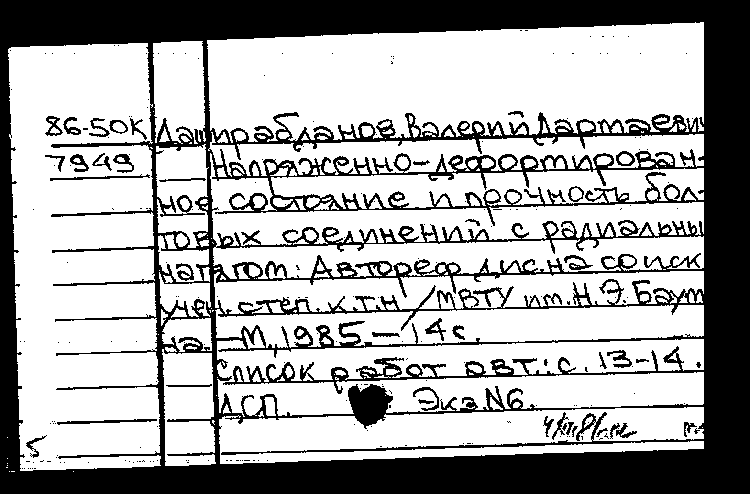 86-50К Даширабданов, Валерий Дартаевич
7949 Напряженно-дефортирован-
ное состояние и прочность бол-
товых соединений с радиальны
натягот: Автореф дис. на соиск
учен. степ. к.т.н / МВТУ им. Н.Э. Баут
на. — М., 1985. — 14 с.
Список работ авт.: с. 13-14.
ДСП. Экз. N6.
5